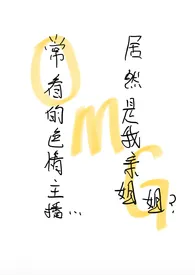 常看的色情主播...
居然是我亲姐姐?
OMG